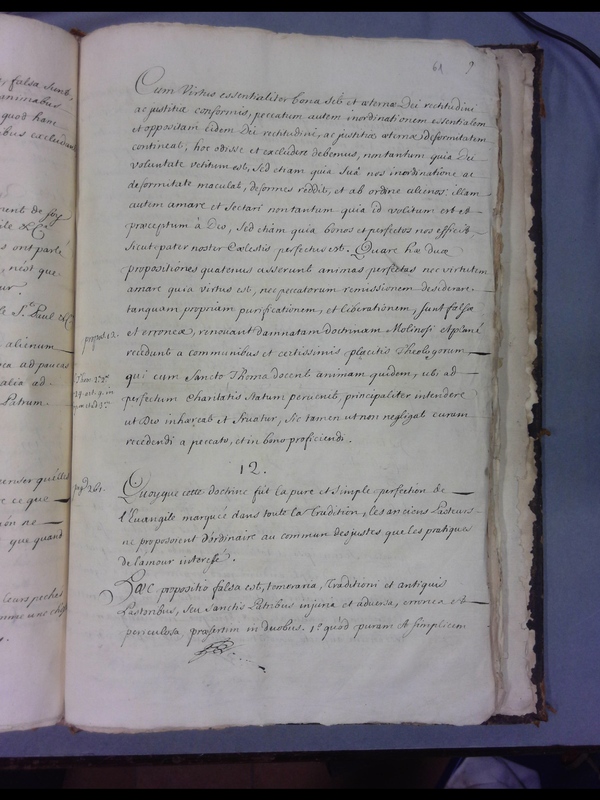 61 9
Cum Virtus essentialiter bona sit et æternæ Dei rectitudini
ac justitiæ conformis, peccatum autem inordinationem essentialem
et oppositam eidem Dei rectitudini, ac justitiæ æternæ deformitatem
contineat, hoc odisse et excludere debemus, non tantum quia Dei
voluntate vetitum est, sed etiam quia suâ nos inordinatione ac
deformitate maculat, deformes reddit, et ab ordine alienos; illam
autem amare et sectari non tantum quia id volitum est et
præceptum à Deo, sed etiam quia bonos et perfectos nos efficit
sicut pater noster Cælestis perfectus est. Quare hæ duæ
propositiones quatenus asserunt animas perfectas nec virtutem
amare quia virtus est, nec peccatorum remissionem desiderare
tanquam propriam purificationem, et liberationem, sunt falsæ
et erroneæ, renovant damnatam doctrinam Molinosi et planè
recedunt a communibus et certissimis placitis Theologorum
qui cum Sancto Thoma docent animam quidem, ubi ad
perfectum Charitatis statum pervenit, principaliter intendere
ut Deo inhæreat et fruatur, sic tamen ut non negligat curam
recedendi a peccato, et in bono proficiendi.
propos. 12.
12.
pag. 261.
Quoyque cette doctrine fût la pure et simple perfection de
l'Euangile marquée dans toute la Tradition, les anciens Pasteurs
ne proposoient d'ordinaire au commun des justes que les pratiques
de l'amour interessé.
Hæc propositio falsa est, temeraria, Traditioni et antiquis
Pastoribus, seu Sanctis Patribus injuria et adversa, erronea et
periculosa, præsertim in duobus. 1º quod puram et simplicem
falsa sunt,
animabus
quod hanc
excludunt
ont parle
nés que
St. Paul &c
alienum
ad paucas
alia ad
Patrum.
ce que
ne
que quant
leurs peches